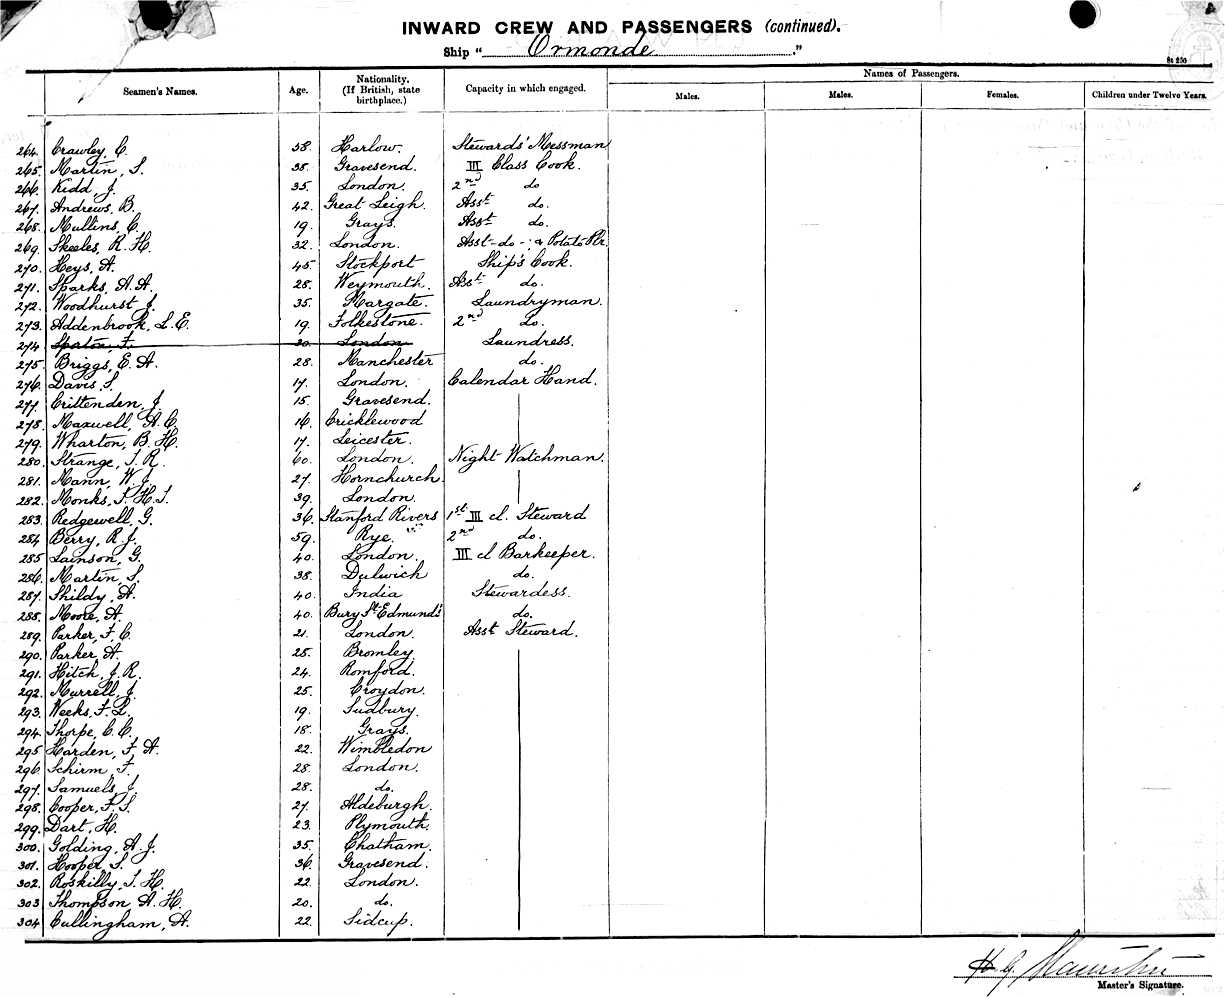 INWARD CREW AND PASSENGERS (continued).
Ship "Ormonde"
St 256
Seamen's Names. Age. Nationality. (If British, state birthplace.) Capacity in which engaged. Names of Passengers.
Males. Males. Females. Children under Twelve Years.
264. Crawley, C. 58. Harlow. Stewards' Messman
265. Martin, S. 38. Gravesend. III Class Cook.
266. Kidd, J. 35. London. 2nd do
267. Andrews, B. 42. Great Leigh. Asst do.
268. Mullins, C. 19. Grays. Asst do.
269. Skeeles, R. H. 32. London. Asst-do-: & Potato Plr.
270. Heys, A. 45. Stockport Ship's Cook.
271. Sparks, A. A. 28. Weymouth. Asst do.
272. Woodhurst J. 35. Margate. Laundryman.
273. Addenbrook, L. E. 19. Folkestone. 2nd do.
274 Spaton, F. 30. London Laundress.
275. Briggs, E. A. 28. Manchester do.
276. Davis, S. 17. London. Calendar Hand.
277. Crittenden, J. 15. Gravesend.
278. Maxwell, A. C. 16. Cricklewood
279. Wharton, B. H. 17. Leicester.
280. Strange, S. R. 60. London. Night Watchman.
281. Mann, W. J. 27. Hornchurch.
282. Monks, S. H. S. 39. London.
283. Redgewell, G. 36. Stanford Rivers 1st III cl. Steward
284 Berry, R. J. 59. Rye. 2nd do.
285 Lainson, G. 40. London. III cl Barkeeper.
286. Martin, S. 38. Dulwich do.
287. Shildy, A. 40. India Stewardess.
288. Moore, A. 40. Bury St. Edmund's do.
289. Parker, F. C. 21. London. Asst Steward.
290. Parker A. 25. Bromley.
291. Hitch, J. R. 24. Romford.
292. Murrell, J. 25. Croydon.
293. Weeks, F. L. 19. Sudbury.
294. Thorpe, C. C. 18. Grays.
295 Harden, F. A. 22. Wimbledon
296. Schirm, F. 28. London.
297. Samuels, J. 28. do.
298. Cooper, F. S. 27. Aldeburgh.
299. Dart, H. 23. Plymouth.
300. Golding, A. J. 35. Chatham.
301. Hooper, S. 36. Gravesend.
302. Roskilly, S. H. 22. London.
303 Thompson A. H. 20. do.
304 Cullingham, A. 22. Sidcup.
Master's Signature.